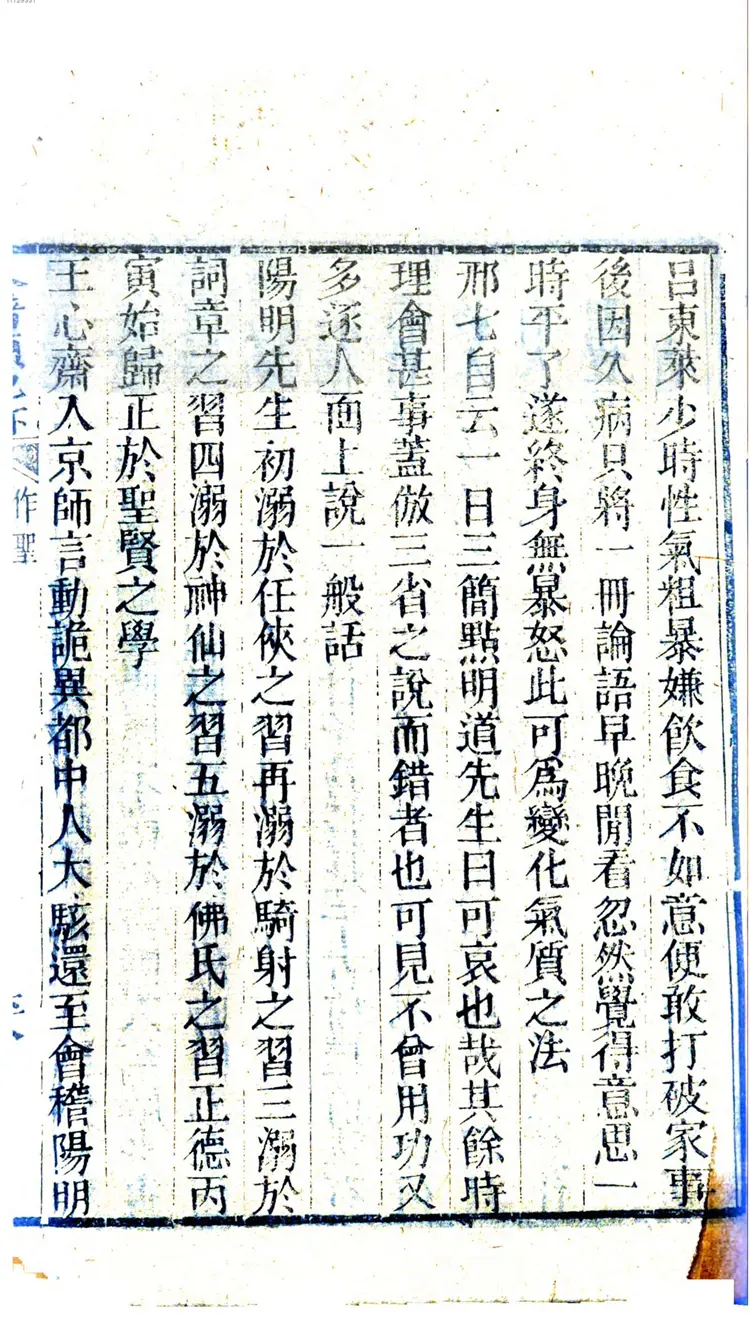 呂東萊少時性氣粗暴嫌飲食不如意便敢打破家事
後因久病只將一冊論語早晚閒看忽然覺得意思一
時平了遂終身無暴怒此可為變化氣質之法
邢七自云一日三簡點明道先生曰可哀也哉其餘時
理會甚事蓋倣三省之說而錯者也可見不曾用功又
多逐人面上說一般話
陽明先生初溺於任俠之習再溺於騎射之習三溺於
詞章之習四溺於神仙之習五溺於佛氏之習正德丙
寅始歸正於聖賢之學
王心齋入京師言動詭異都中人大駭還至會稽陽明
作聖